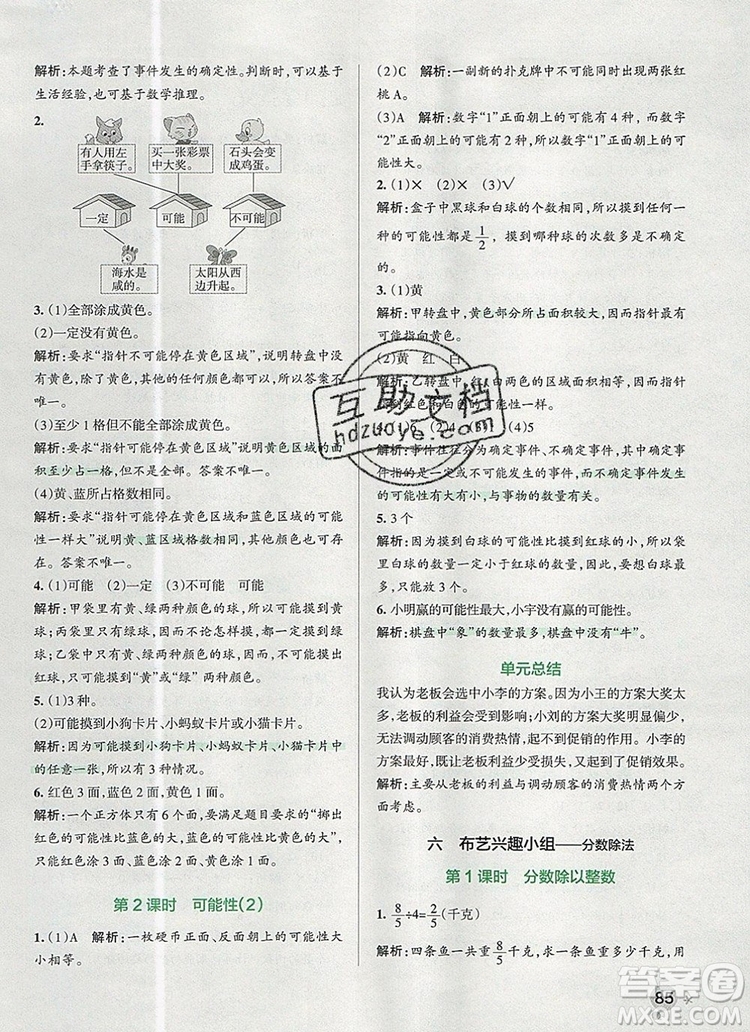 解析:本题考查了事件发生的确定性。判断时,可以基于
生活经验,也可基于数学推理。
2.
有人用左
手拿筷子。
买一张彩票
中大奖。
石头会变
成鸡蛋。
一定
可能
不可能
海水是
咸的。
太阳从西
边升起。
3. (1)全部涂成黄色。
(2)一定没有黄色。
解析:要求“指针不可能停在黄色区域”,说明转盘中没有
黄色,除了黄色,其他的任何颜色都可以有。答案不
唯一。
(3)至少1格但不能全部涂成黄色。
解析:要求“指针可能停在黄色区域”,说明黄色区域的面
积至少占一格,但不能占满全部。答案不唯一。
(4)黄、蓝所占格数相同。
解析:要求“指针停在黄色区域和蓝色区域的可能
性一样大”说明黄、蓝区域格数相同,其他颜色可以
有。答案不唯一。
4. (1)可能 (2)一定 (3)不可能 可能
解析:甲袋里有黄、绿两种颜色的球,所以可能摸到黄
球;乙袋中只有绿球,所以无论怎样摸,都会摸到绿球;
丙袋中有白、绿两种颜色的球,所以可能摸到绿球,但
不可能摸到“黄”和“绿”以外的颜色。
5. (1)3种。
(2)可能摸到小狗卡片、小蚂蚁卡片或小猫卡片。
解析:因为可能摸到小狗卡片、小蚂蚁卡片、小猫卡片中
的任意一张,所以有3种情况。
6. 红色3面,蓝色2面,黄色1面。
解析:一个正方体共有6个面,要满足题目要求的“掷出
红色的可能性比蓝色大,蓝色的可能性比黄色大”,所以
红色涂3面,蓝色涂2面,黄色涂1面。
第2课时 可能性(2)
1. (1)A 解析:一枚硬币正面、反面朝上的可能性大
小相等。
(2)C 解析:一副新的扑克牌中不可能同时出现两张红
桃A。
(3)A 解析:数字“1”正面朝上的可能有4种,而数字
“2”正面朝上的可能有2种,所以数字“1”正面朝上的可
能性大。
2. (1)× (2)× (3)√
解析:盒子中黑球和白球的个数相同,所以摸到任何一
种球的可能性都是1/2,摸到哪种球的次数多是不确
定的。
3. (1)黄
解析:甲转盘中,黄色部分所占面积较大,所以指针最有
可能指向黄色。
(2)黄 红 白
解析:乙转盘中,红白两色的区域面积相等,所以
可能性相等。
4. (1)6 (2)4 (4)5
解析:事件性往分为确定事件、不确定事件,其中确定事
件指的是一定或不可能的事件,而不确定事件发生
的可能性有大有小,与事物的数量有关。
5. 3个
解析:因为摸到白球的可能性比摸到红球的大,所以袋
里白球的数量一定小于红球的数量,所以最少放3个
红球。
6. 小明赢的可能性最大,小宇没有赢的可能性。
解析:棋盘中“象”的数量最多,而棋盘中没有“牛”。
单元总结
我认为老板会选中小李的方案。因为小王的方案大奖太
多,老板的利益会受到影响;小刘的方案大奖偏少,
无法调动顾客的消费热情,起不到促销的作用。小李的
方案最好,既能让老板利益少受损失,又能达到促销效果。
解析:主要从老板的利益与调动顾客消费热情这两个方
面考虑。
六 布艺兴趣小组——分数除法
第1课时 分数除以整数
1. 8/5÷4=2/5(千克)
解析:四条鱼一共重8/5千克,求一条鱼重多少千克,用
85
互助文档
hdzuoye.com
答案圈
MXQE.COM